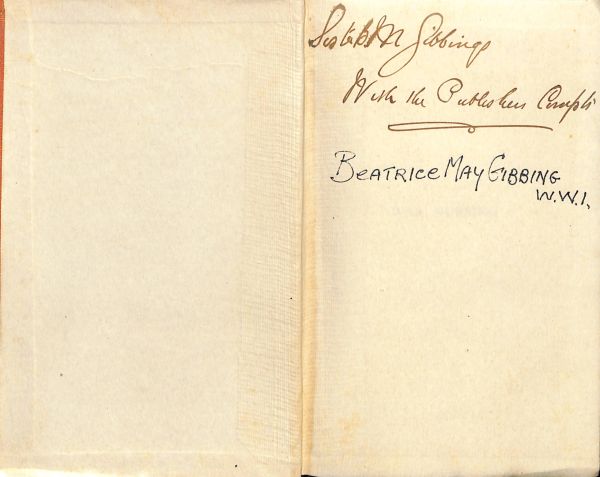 Sister B M Gibbings
With the Publishers Compts
BEATRICE MAY GIBBING
W.W.I.